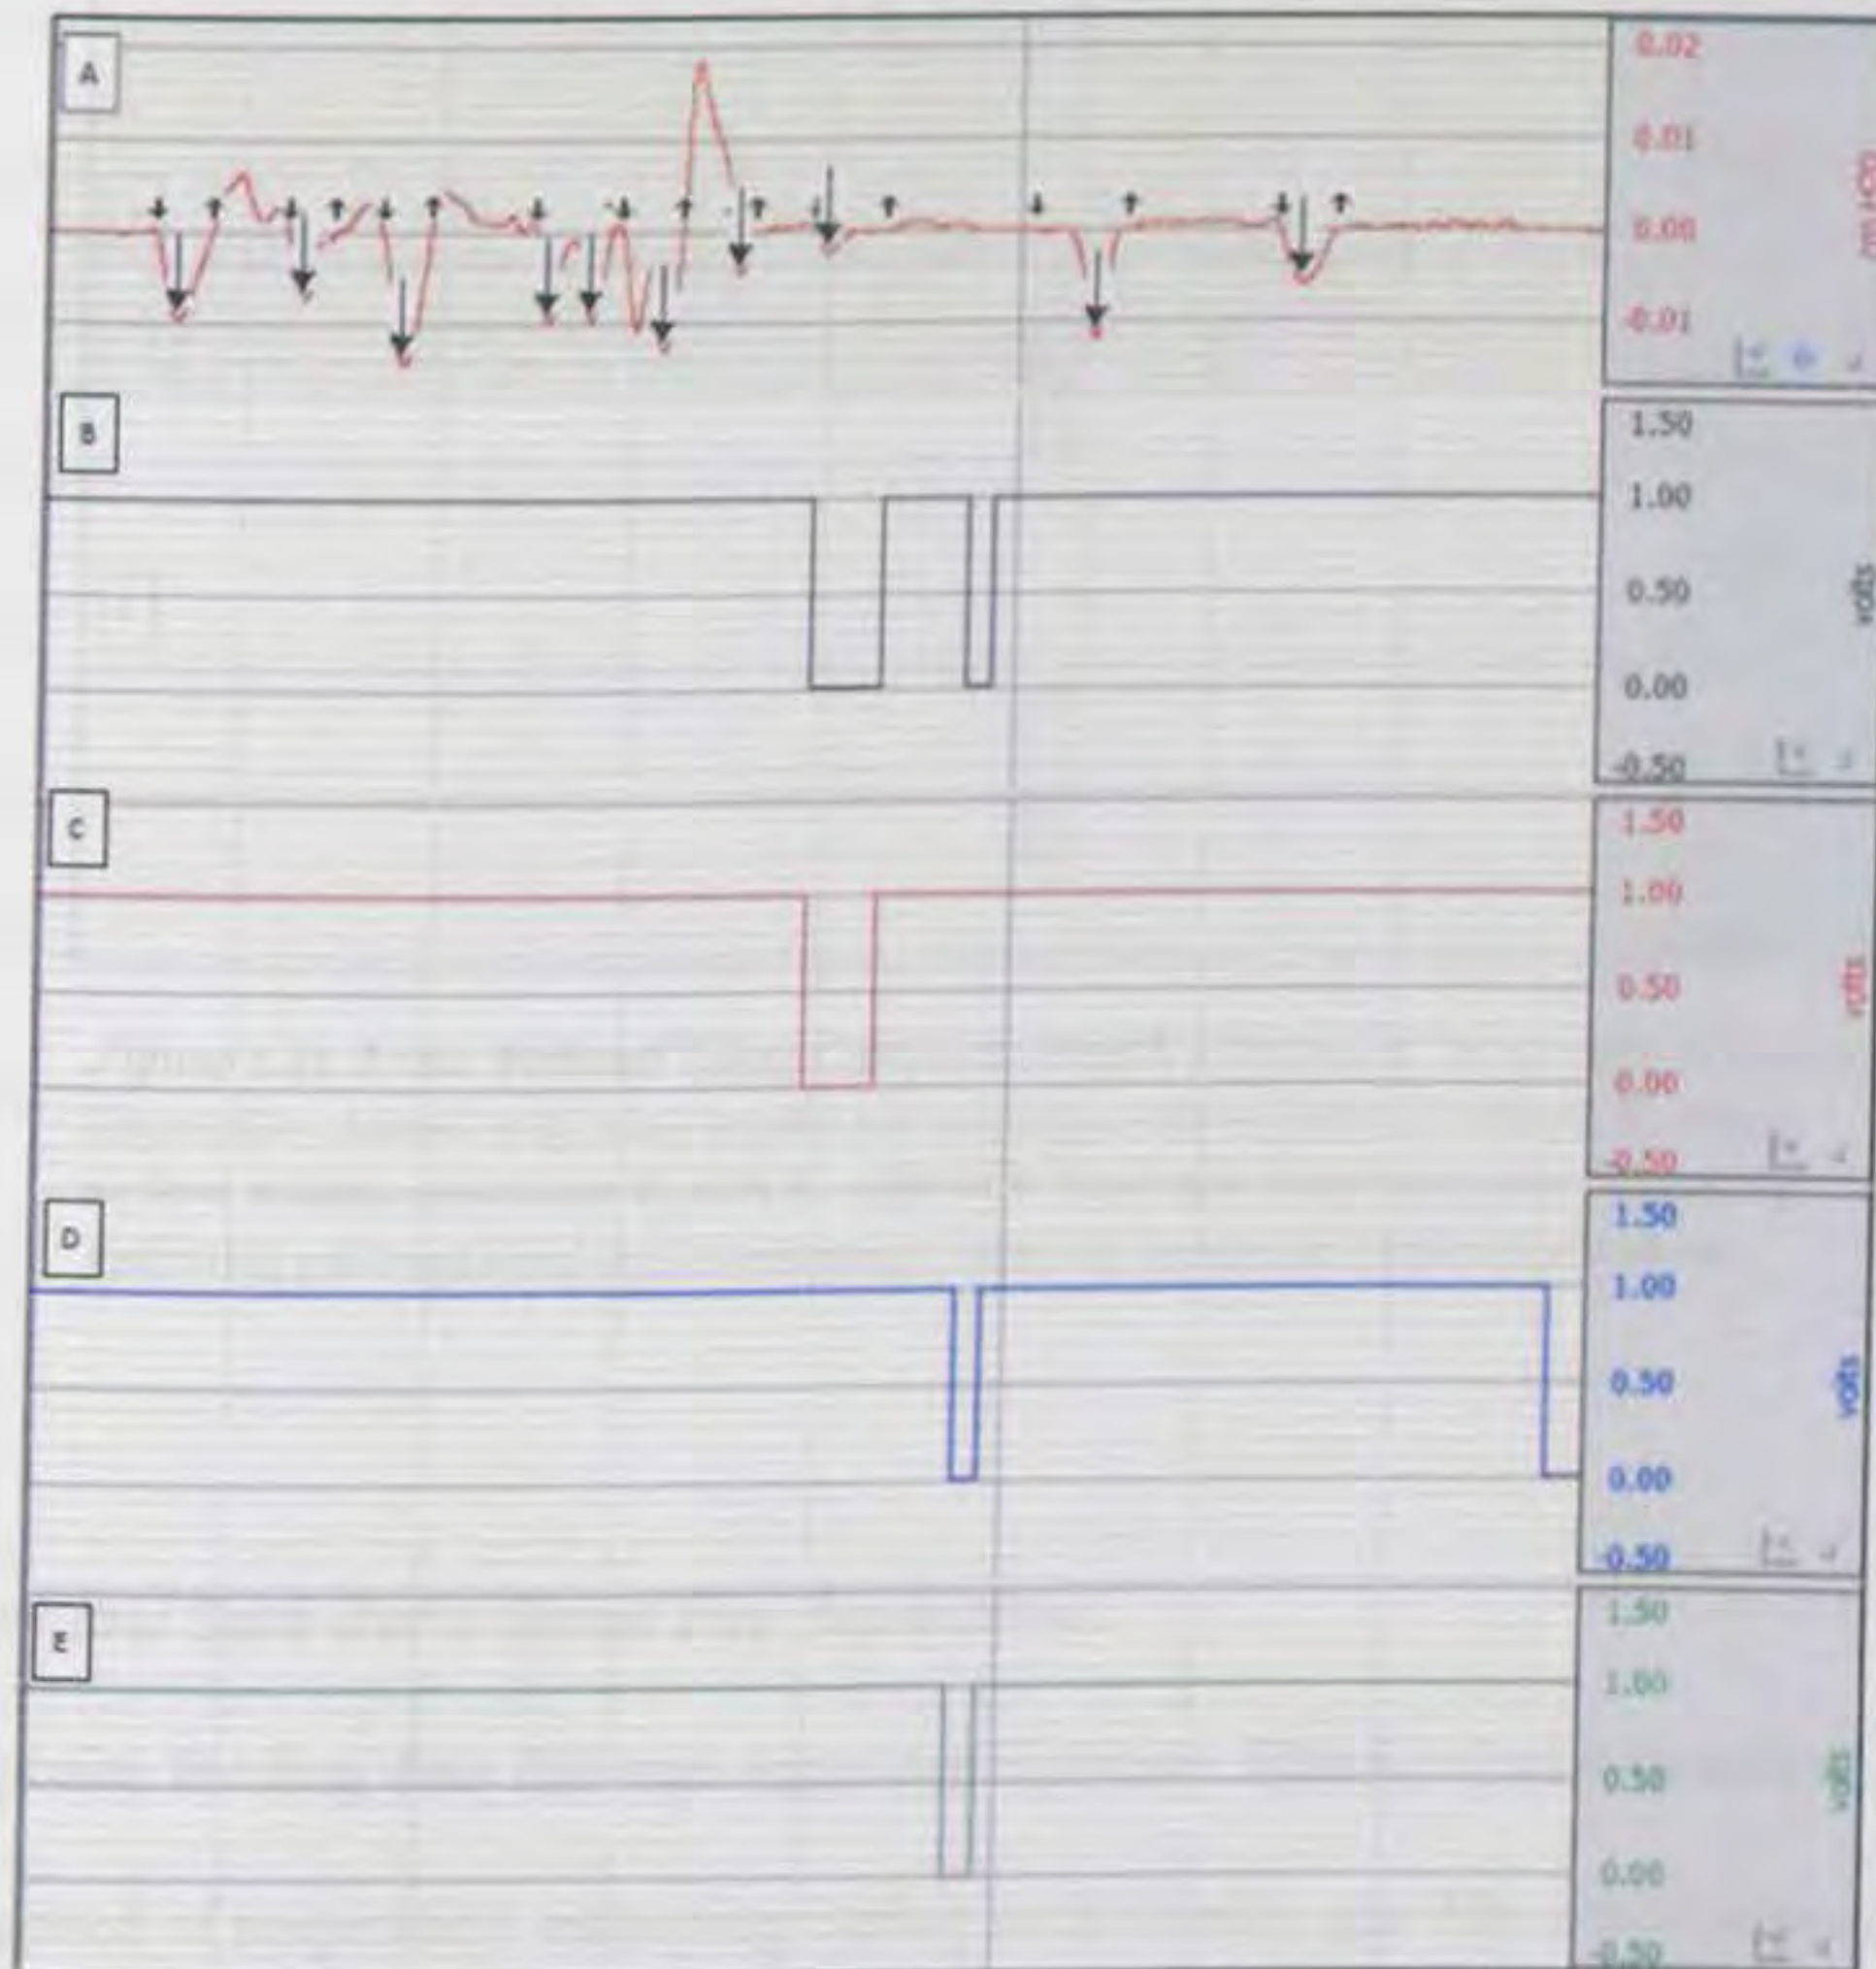 A
0.02
0.01
0.00
-0.01
B
1.50
1.00
0.50
0.00
-0.50
volts
C
1.50
1.00
0.50
0.00
-0.50
volts
D
1.50
1.00
0.50
0.00
-0.50
volts
E
1.50
1.00
0.50
0.00
-0.50
volts